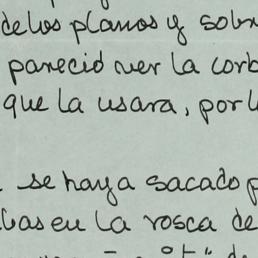 de los planos y sobr
parecid ver la corb
que la usara, por l
se haya sacado p
bas en la rosca de